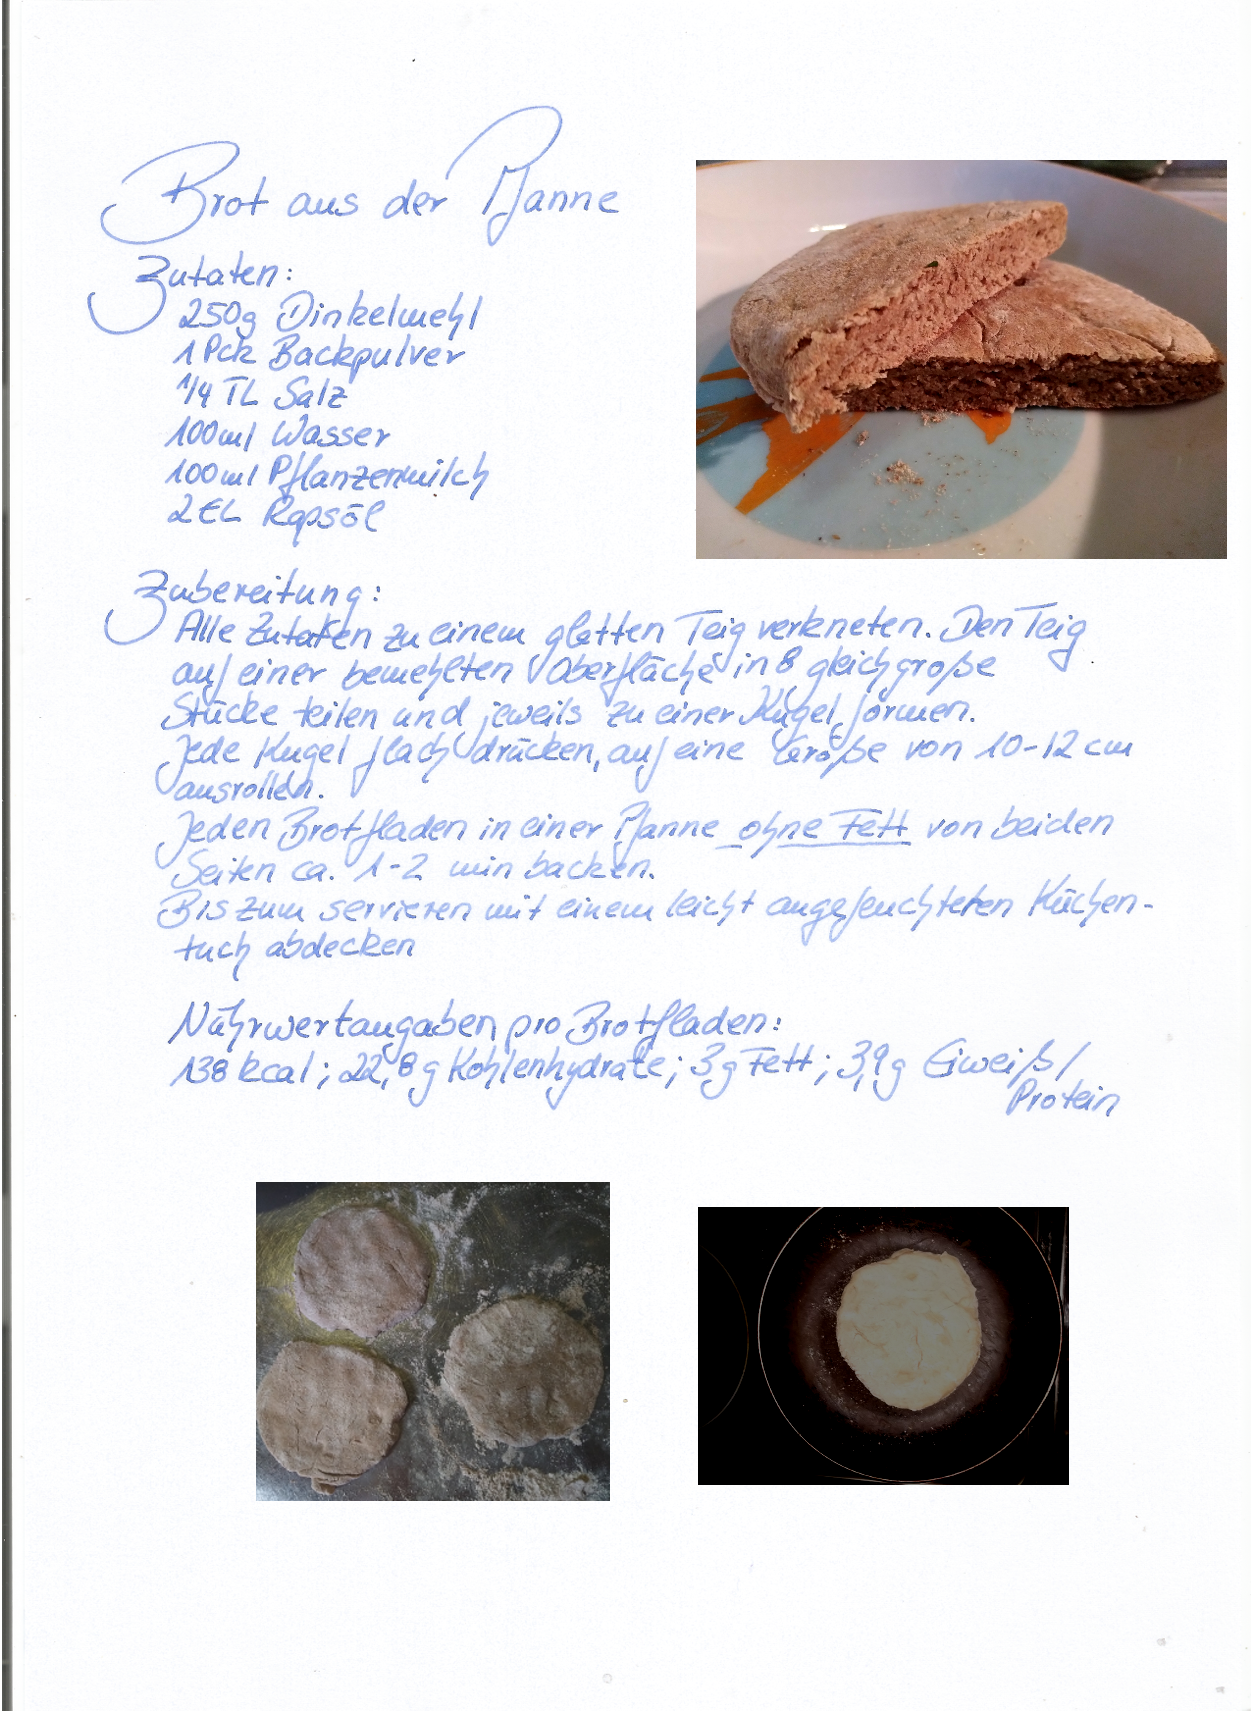 Brot aus der Pfanne
Zutaten:
250g Dinkelmehl
1 Pck Backpulver
1/4 TL Salz
100ml Wasser
100ml Pflanzenmilch
2 EL Rapsöl
Zubereitung:
Alle Zutaten zu einem glatten Teig verkneten. Den Teig
auf einer bemehlten Oberfläche in 8 gleichgroße
Stücke teilen und jeweils zu einer Kugel formen.
Jede Kugel flach drücken, auf eine Größe von 10-12 cm
ausrollen.
Jeden Brotfladen in einer Pfanne ohne Fett von beiden
Seiten ca. 1-2 min backen.
Bis zum servieren mit einem leicht angefeuchteten Küchen-
tuch abdecken
Nährwertangaben pro Brotfladen:
138 kcal; 22,8g Kohlenhydrate; 3g Fett; 3,9g Eiweiß/
Protein